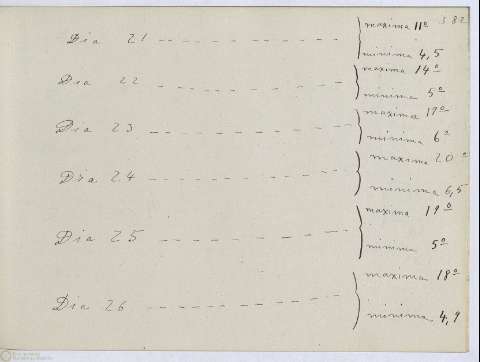 382
Dia 21 — — — — — — — maxima 11º
minima 4,5
Dia 22 — — — — — — — maxima 14º
minima 5º
Dia 23 — — — — — — — maxima 17º
minima 6º
Dia 24 — — — — — — — maxima 20º
minima 6,5
Dia 25 — — — — — — — maxima 19º
minima 5º
Dia 26 — — — — — — — maxima 18º
minima 4,9